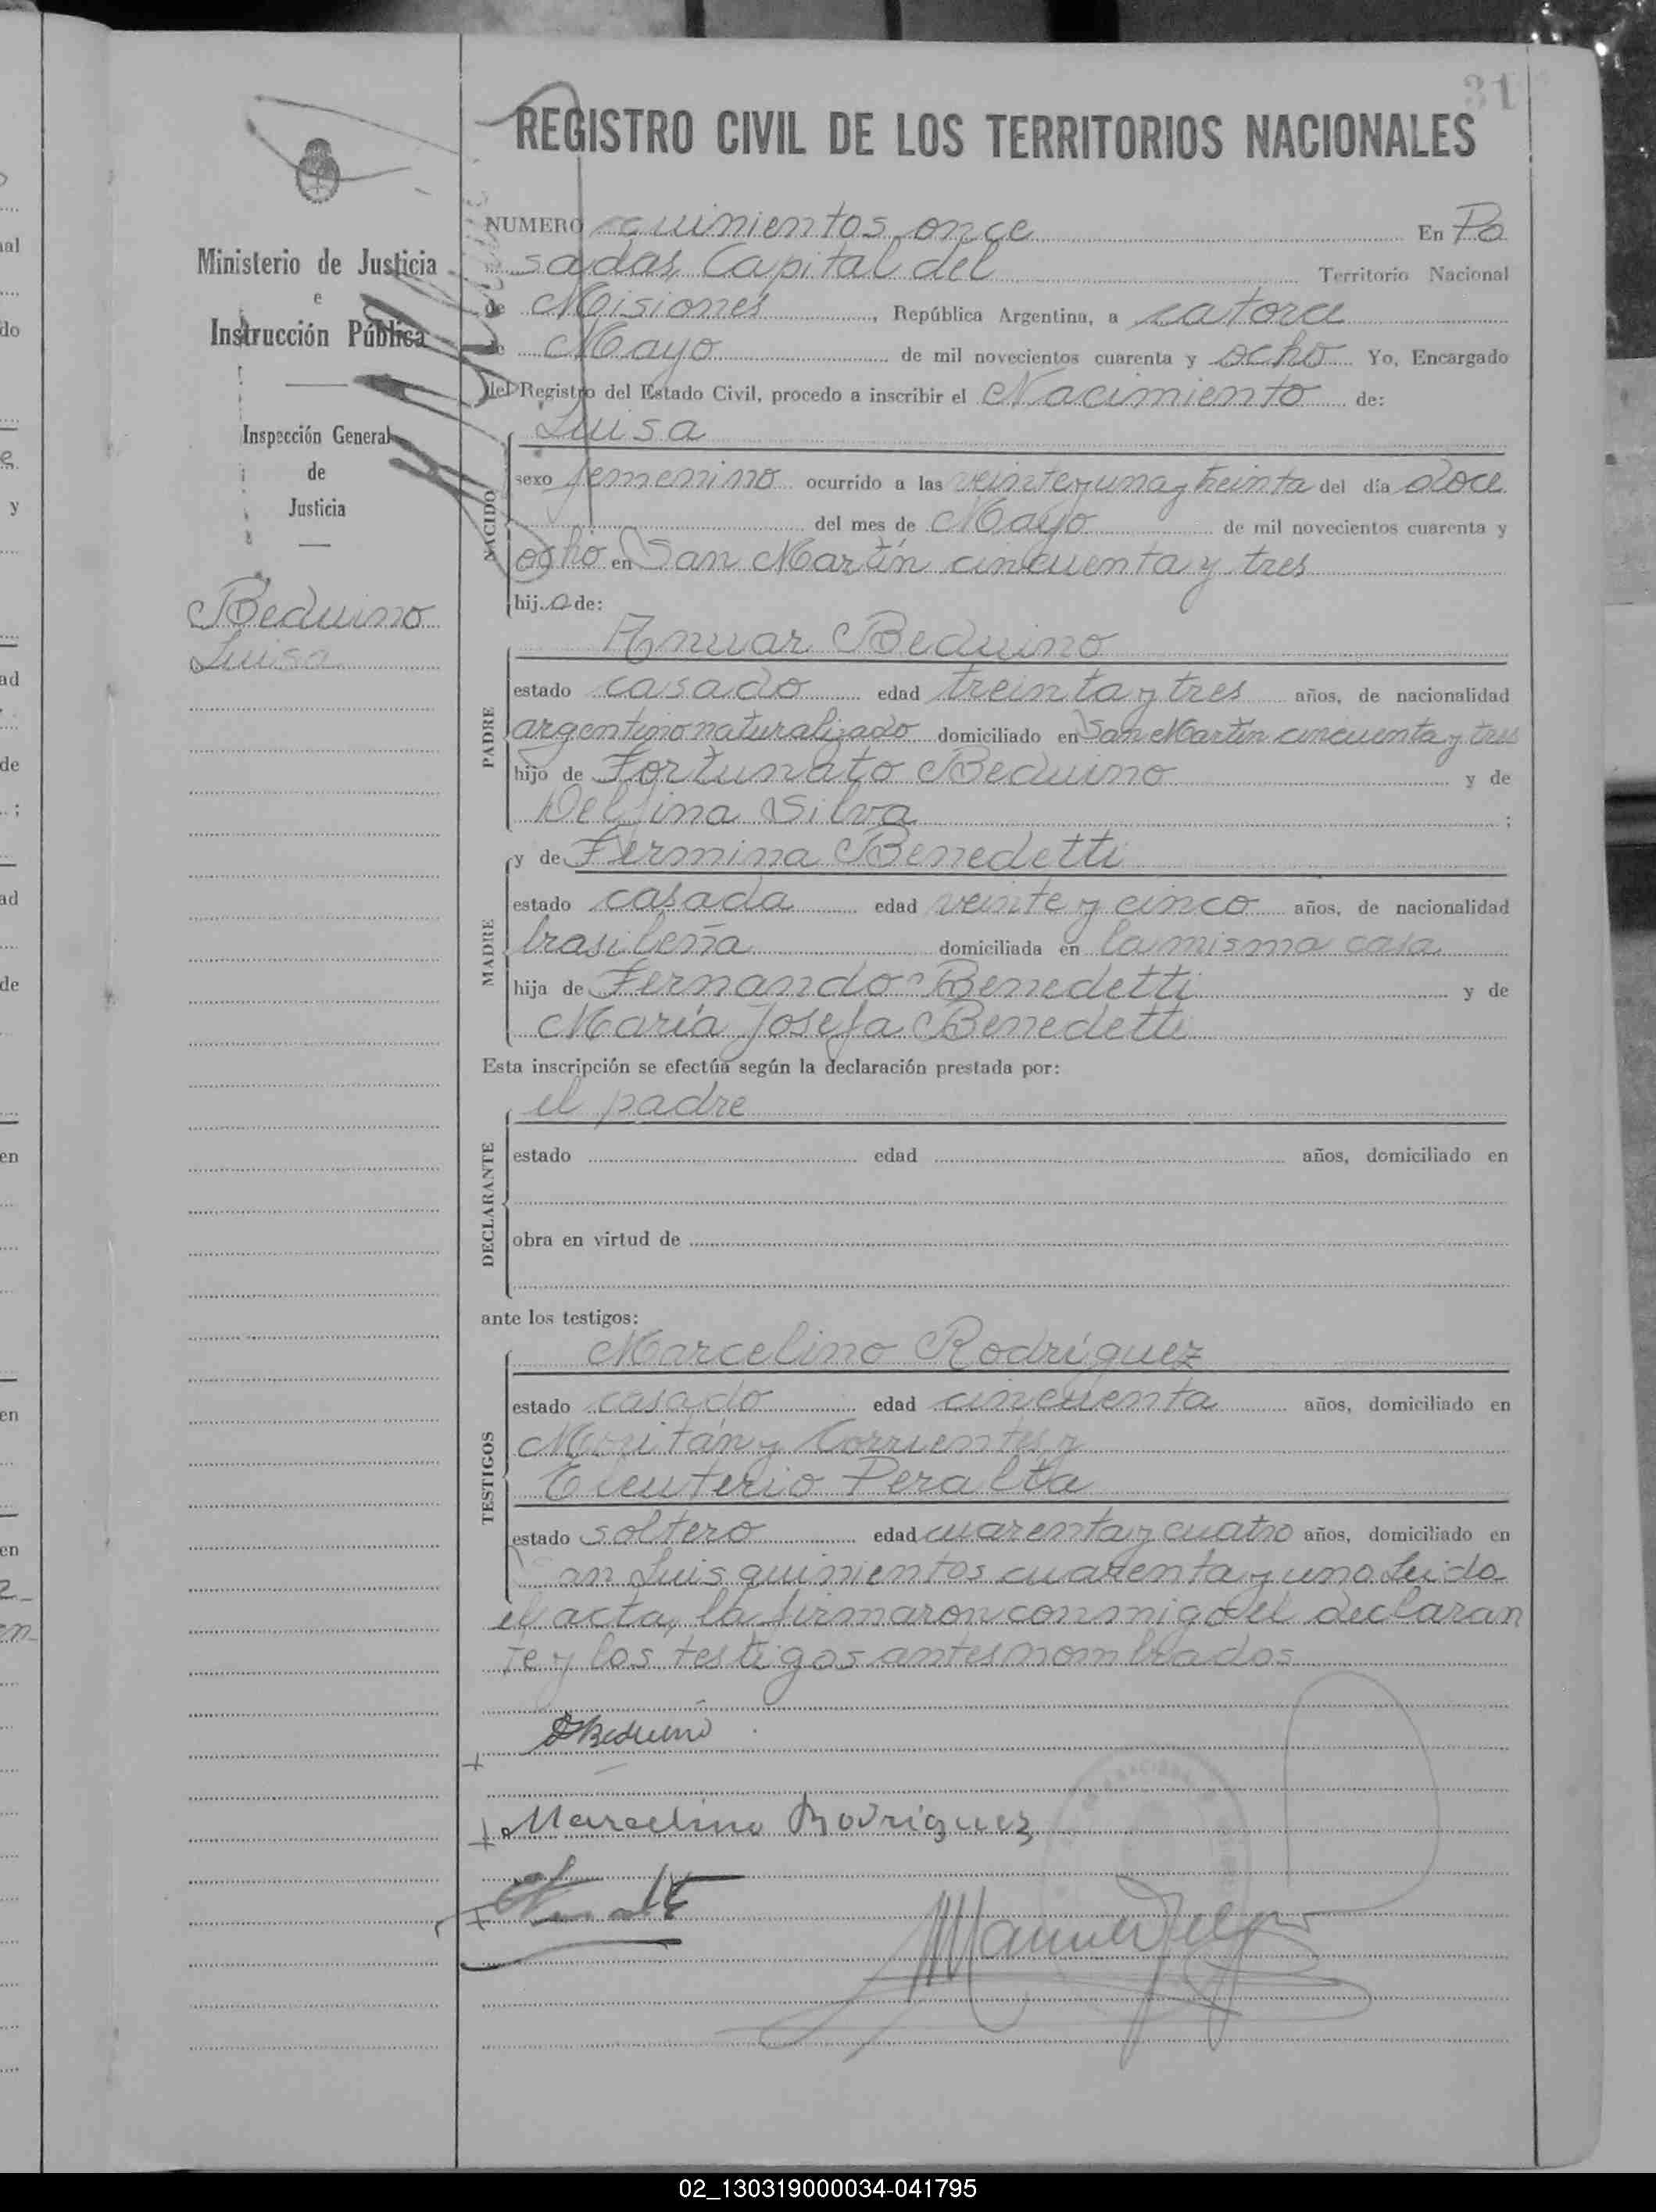 31
REGISTRO CIVIL DE LOS TERRITORIOS NACIONALES
Ministerio de Justicia
e
Instrucción Pública
Inspección General
de
Justicia
Beduino
Luisa
NUMERO quinientos once En Po
sadas, Capital del Territorio Nacional
de Misiones, República Argentina, a catorce
de Mayo de mil novecientos cuarenta y ocho Yo, Encargado
del Registro del Estado Civil, procedo a inscribir el Nacimiento de:
Luisa
NACIDO
sexo femenino ocurrido a las veinte y una y treinta del día doce
del mes de Mayo de mil novecientos cuarenta y
ocho en San Martín cincuenta y tres
hija de:
Anuar Beduino
PADRE
estado casado edad treinta y tres años, de nacionalidad
argentino naturalizado domiciliado en San Martín cincuenta y tres
hijo de Fortunato Beduino y de
Delfina Silva ;
y de Fermina Benedetti
MADRE
estado casada edad veinte y cinco años, de nacionalidad
brasileña domiciliada en la misma casa
hija de Fernando Benedetti y de
María Josefa Benedetti
Esta inscripción se efectúa según la declaración prestada por:
el padre
DECLARANTE
estado edad años, domiciliado en
obra en virtud de
ante los testigos:
Marcelino Rodríguez
TESTIGOS
estado casado edad cincuenta años, domiciliado en
y Corrientes y
Eleuterio Peralta
estado soltero edad cuarenta y cuatro años, domiciliado en
San Luis quinientos cuarenta y uno. Leido
el acta, la firmaron conmigo el declaran
te y los testigos antes nombrados
Beduino
Marcelino Rodriguez
02_130319000034-041795